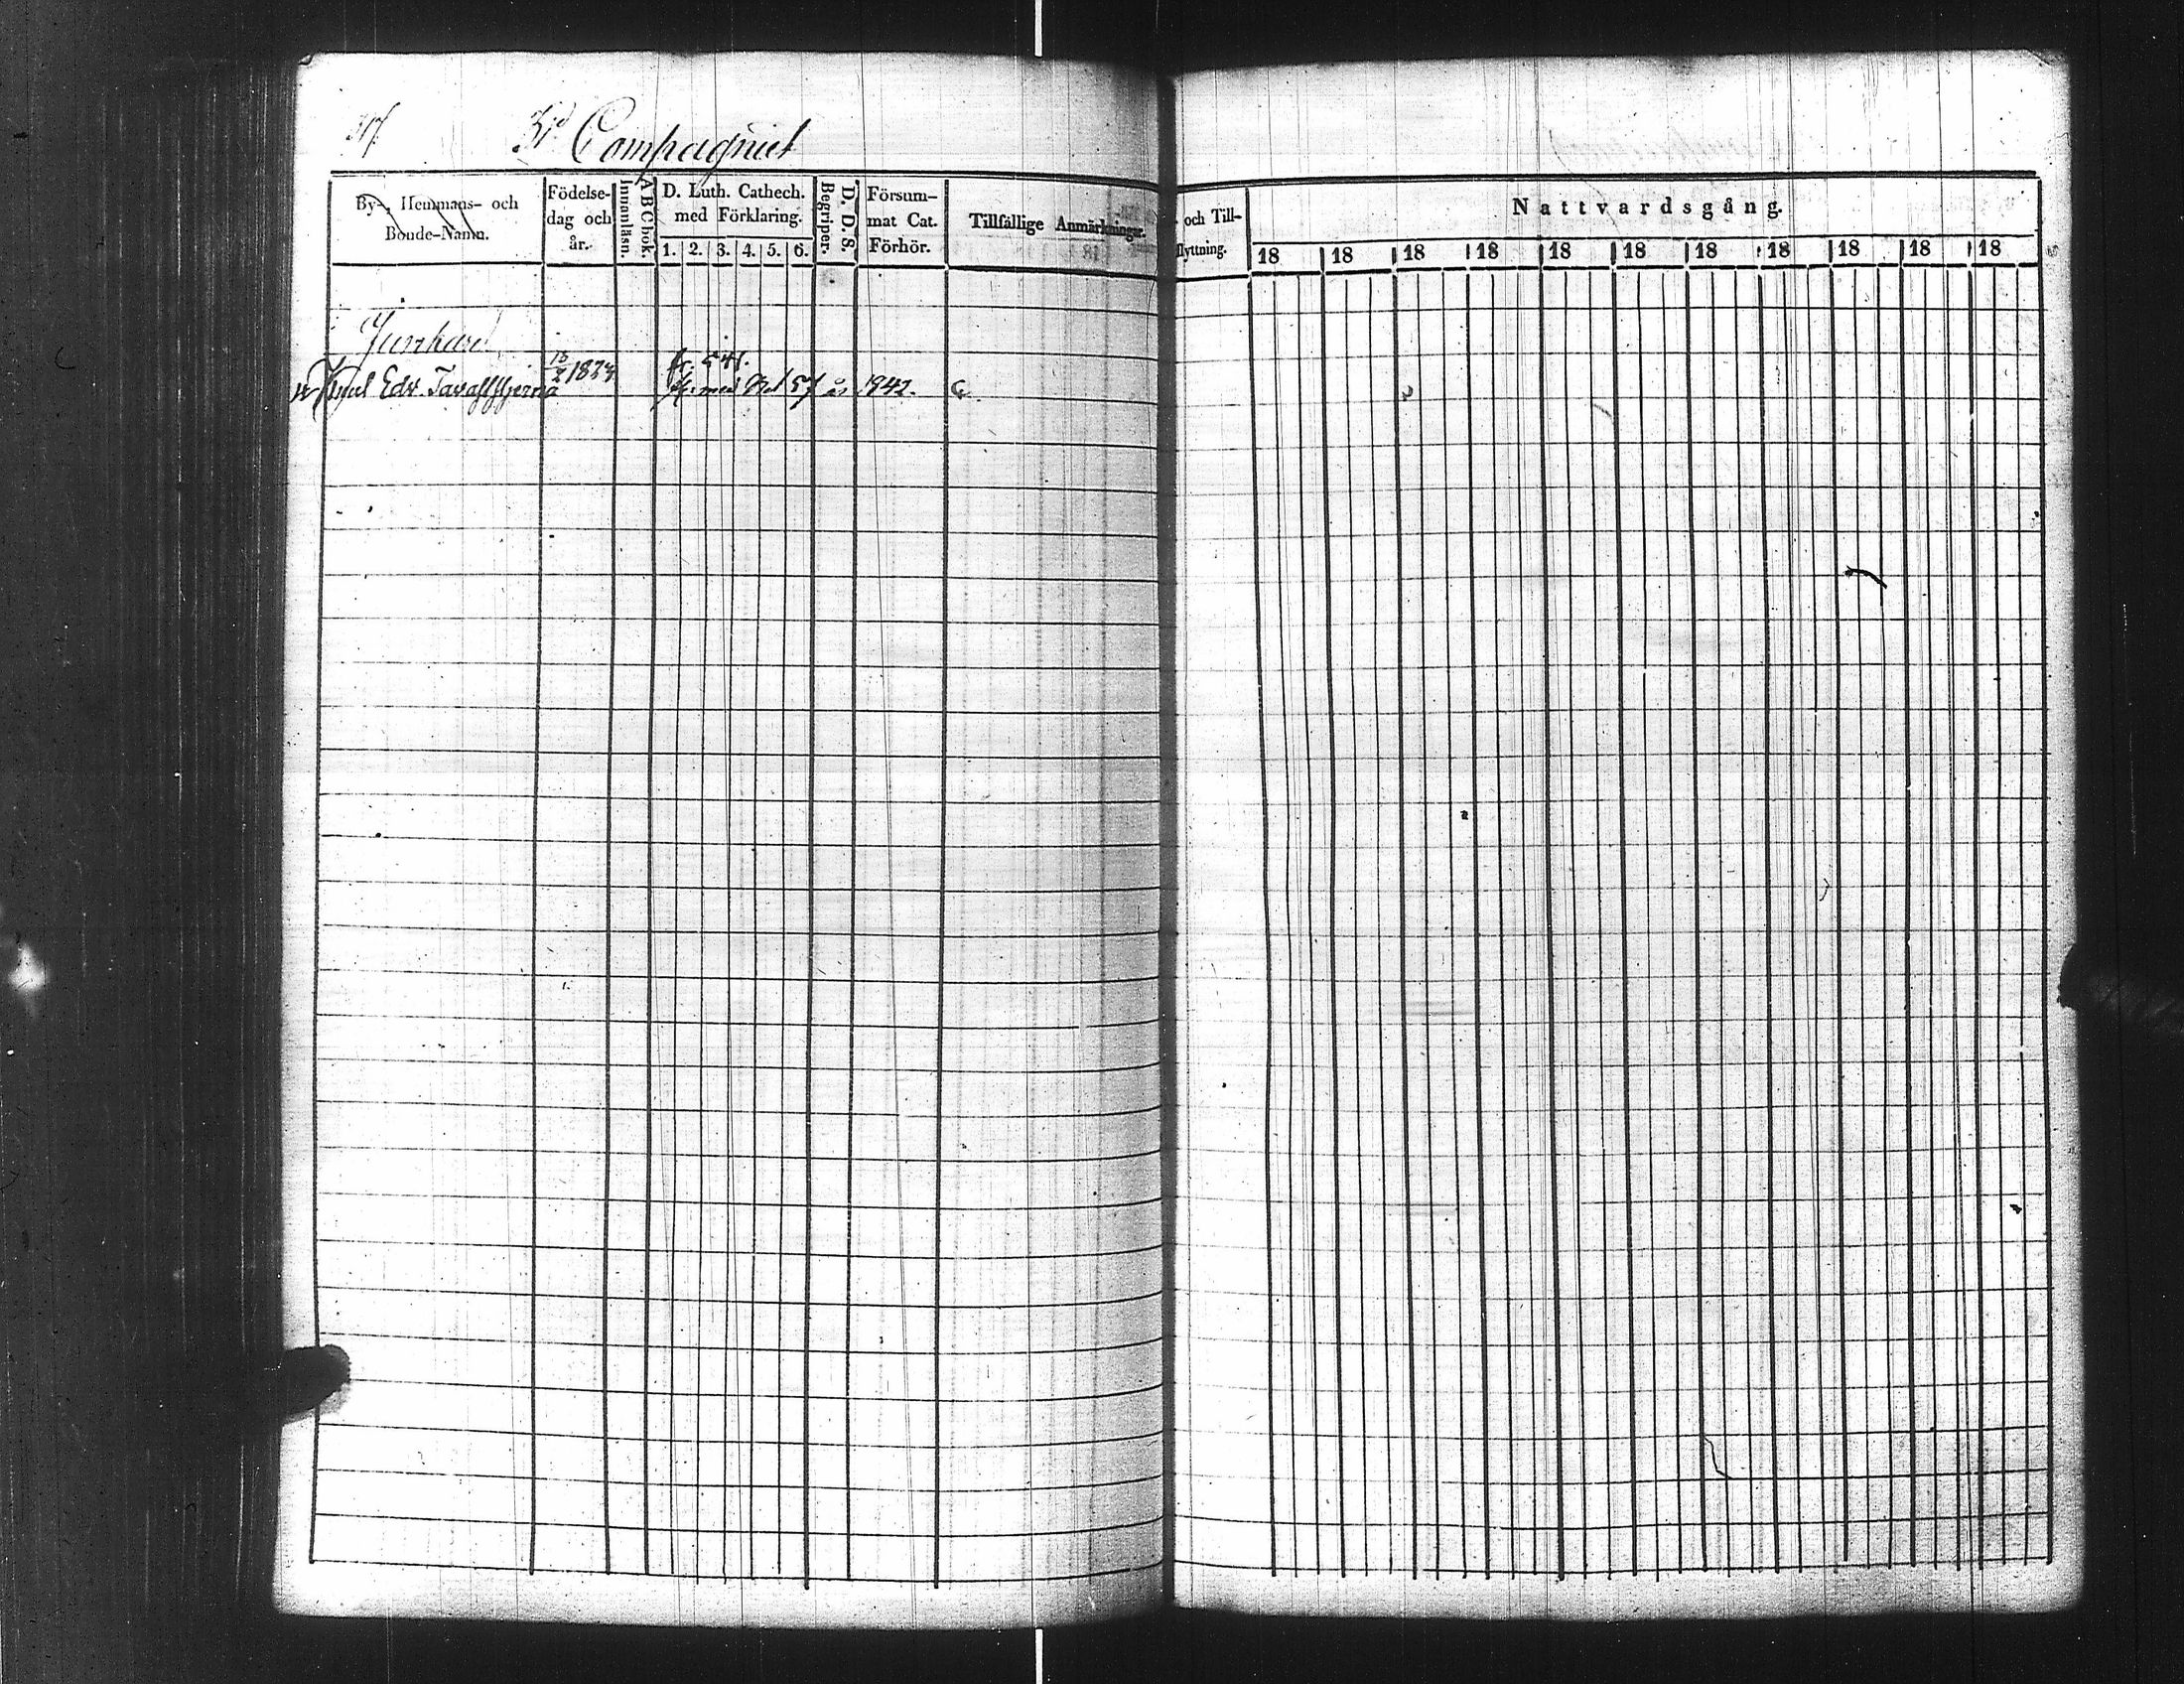 3:e Compagniet
By-, Hemmans- och Bonde-Namn.
Födelse-dag och år.
Innanläsn.
ABCbok.
D. Luth. Cathech. med Förklaring.
1. 2. 3. 4. 5. 6.
Begriper.
D. D. S.
Försum-mat Cat. Förhör.
Tillfällige Anmärkningar.
och Till-
flyttning.
Nattvardsgång.
18 18 18 18 18 18 18 18 18 18 18
Junkare
Edv. Tavaststjerna 1824
fr. 541.
med Bet 57 år 1842.